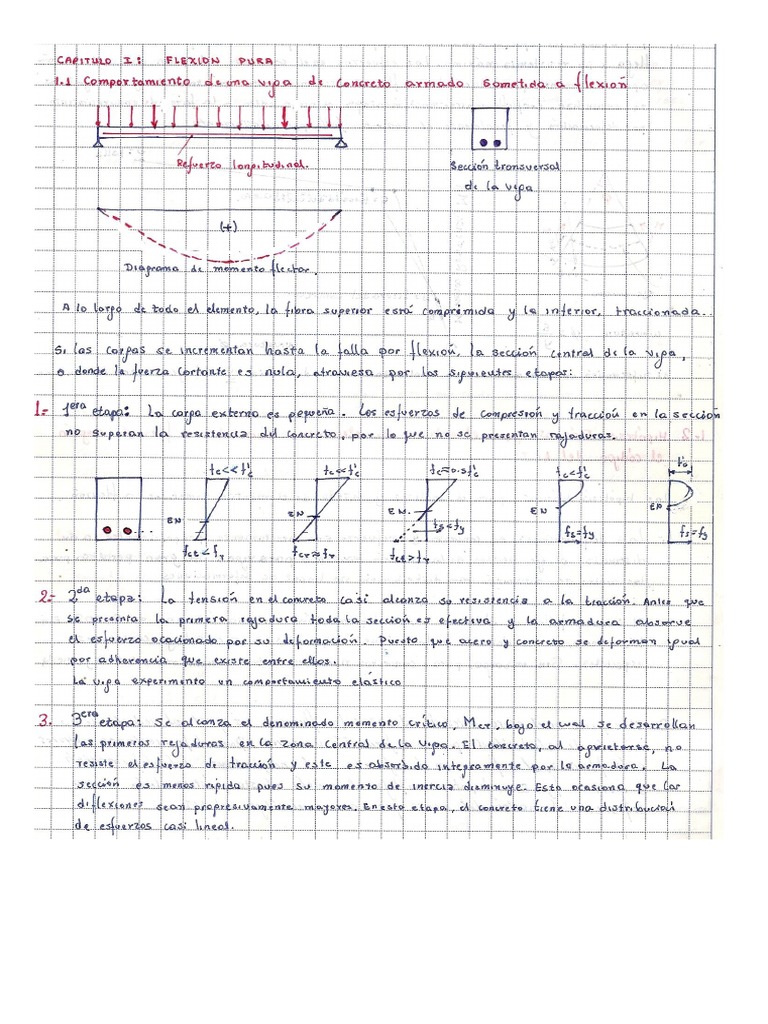 CAPITULO I: FLEXION PURA
1.1 Comportamiento de una viga de concreto armado sometida a flexión
Refuerzo longitudinal.
Sección transversal
de la viga
(+)
Diagrama de momento flector.
A lo largo de todo el elemento, la fibra superior está comprimida y la inferior, traccionada.
Si las cargas se incrementan hasta la falla por flexión, la sección central de la viga,
o donde la fuerza cortante es nula, atraviesa por las siguientes etapas:
1.- 1era etapa: La carga externa es pequeña. Los esfuerzos de compresión y tracción en la sección
no superan la resistencia del concreto, por lo que no se presentan rajaduras.
fc<<f'c fc<<f'c fc=0.5f'c fc<f'c f'c
EN EN EN. EN EN
fs<fy fs=fy fs=fy
fct<fr fct≈fr fct>fr
2.- 2da etapa: La tensión en el concreto casi alcanza su resistencia a la tracción. Antes que
se presenta la primera rajadura toda la sección es efectiva y la armadura absorve
el esfuerzo ocacionado por su deformación. Puesto que acero y concreto se deforman igual
por adherencia que existe entre ellos.
La viga experimenta un comportamiento elástico
3. 3era etapa: Se alcanza el denominado momento crítico, Mcr, bajo el cual se desarrollan
las primeras rajaduras en la zona central de la viga. El concreto, al agrietarse, no
resiste el esfuerzo de tracción y este es absorbido integramente por la armadura. La
sección es menos rígida pues su momento de inercia disminuye. Esto ocasiona que las
diflexiones sean progresivamente mayores. En esta etapa, el concreto tiene una distribución
de esfuerzos casi lineal.